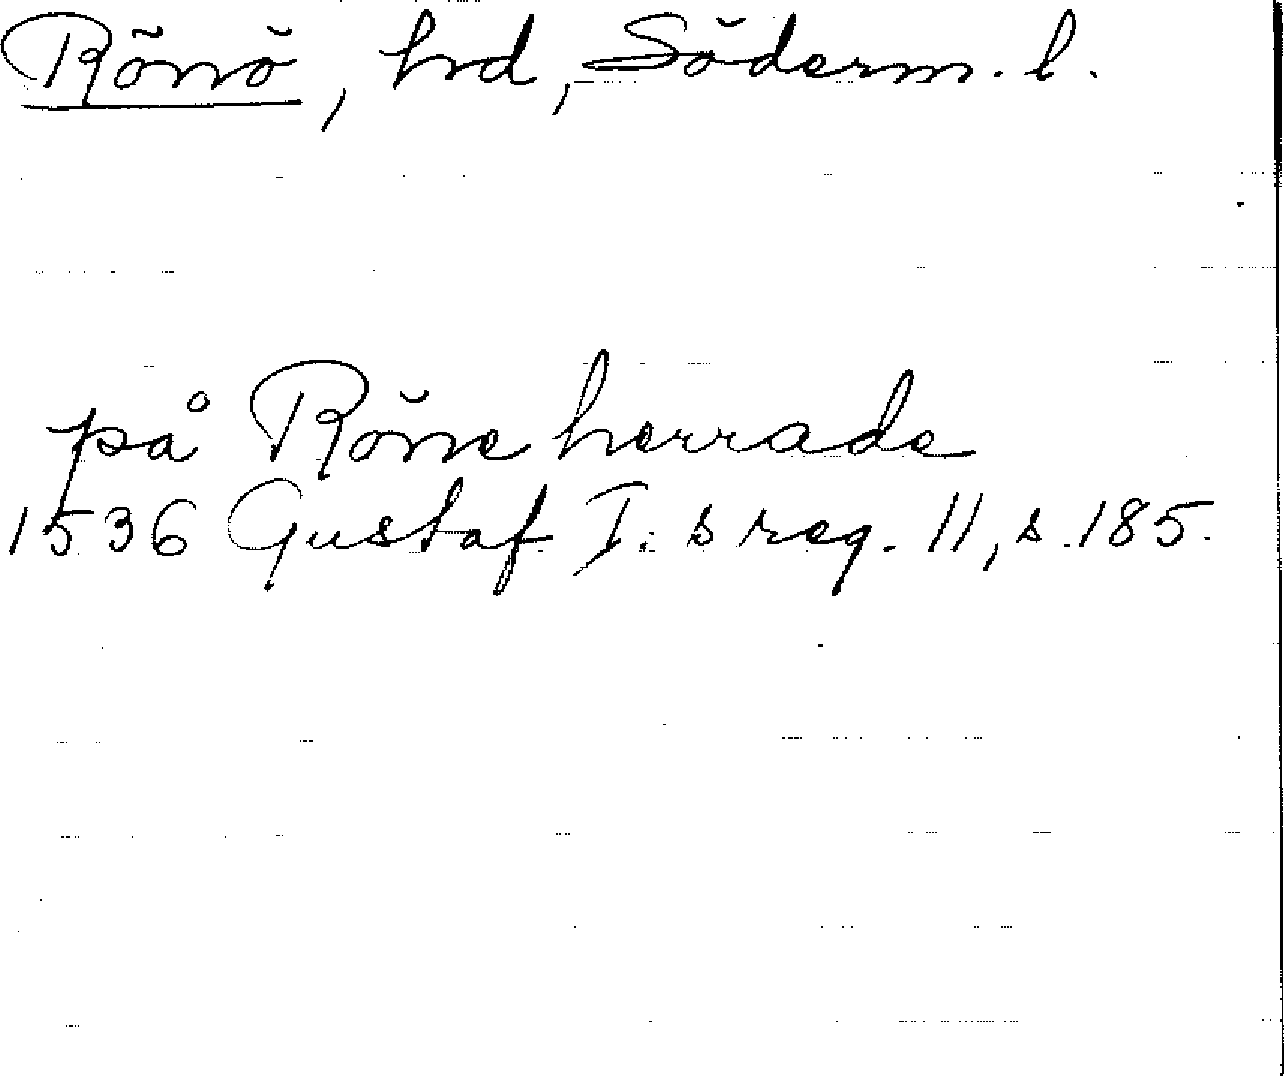 Rönö, hrd, Söderm. l.
på Röne herrade
1536 Gustaf I:s reg. 11, s. 185.